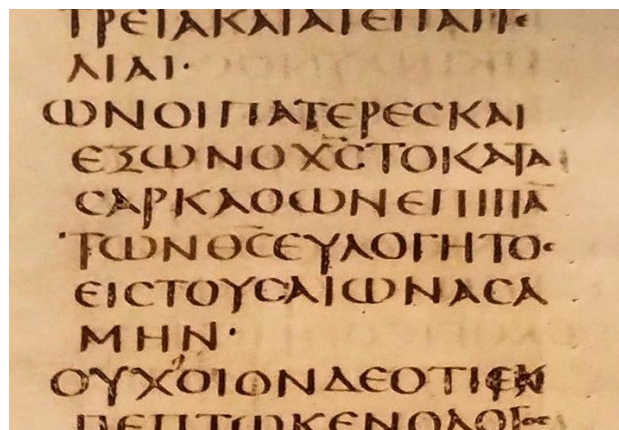 ΤΡΕΙΑΚΑΙΑΙΕΠΑΓΓΕ
ΛΙΑΙ·
ΩΝΟΙΠΑΤΕΡΕϹΚΑΙ
ΕΞΩΝΟΧ̅Ϲ̅ΤΟΚΑΤΑ
ϹΑΡΚΑΟΩΝΕΠΙΠΑ̅
ΤΩΝΘ̅Ϲ̅ΕΥΛΟΓΗΤΟ·
ΕΙϹΤΟΥϹΑΙΩΝΑϹΑ
ΜΗΝ·
ΟΥΧΟΙΟΝΔΕΟΤΙΕΚ
ΠΕΠΤΩΚΕΝΟΛΟΓΟϹ